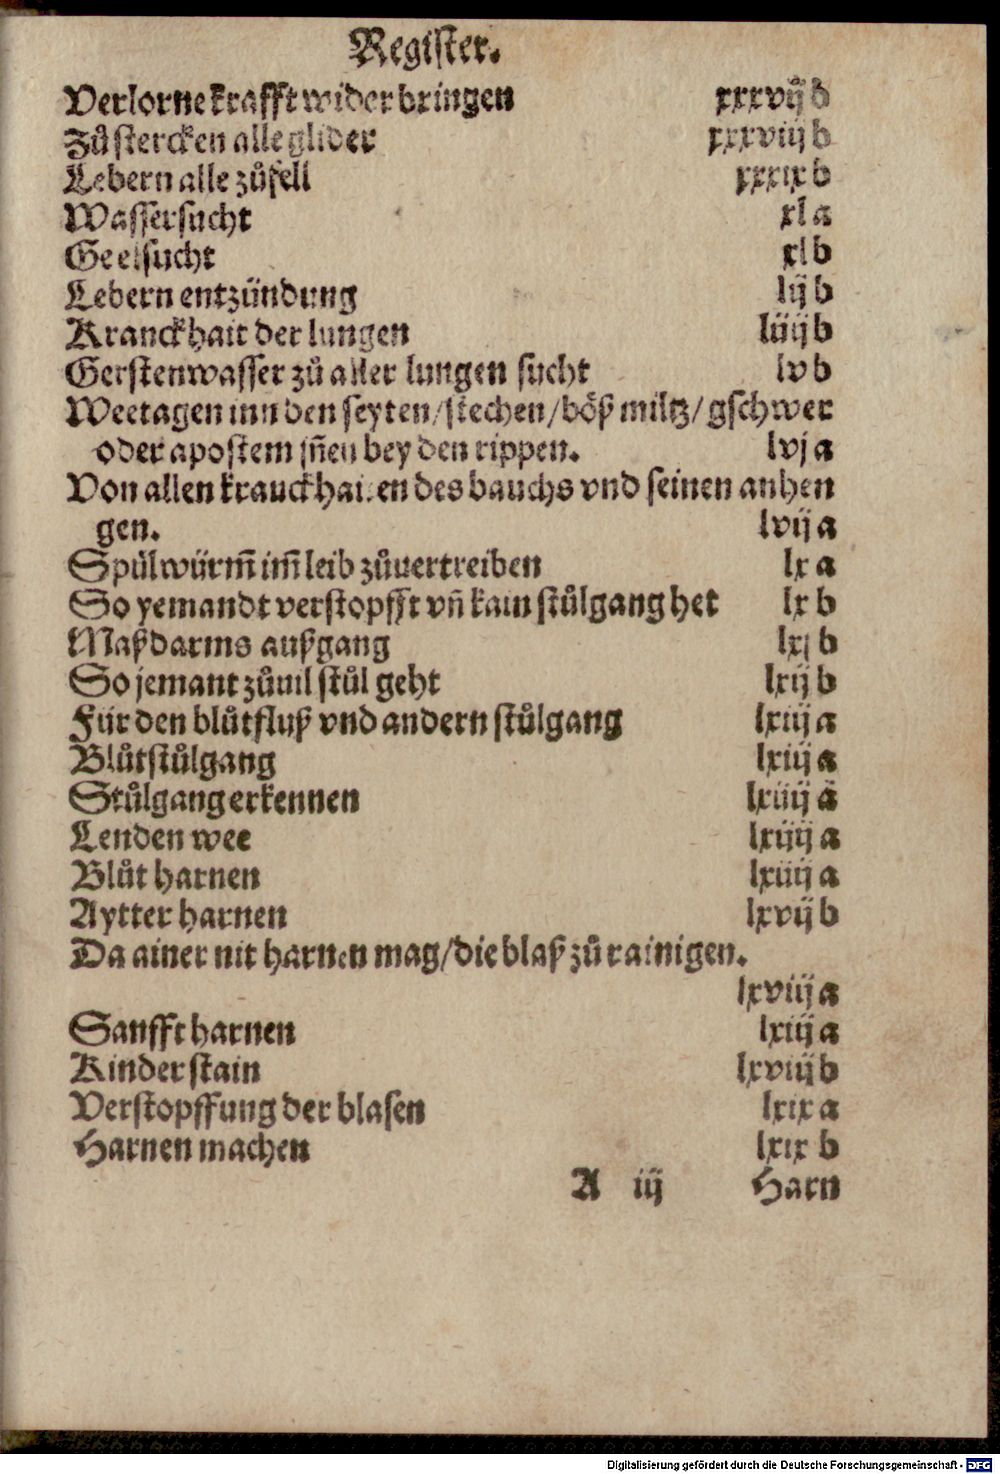 Register.
Verlorne krafft wider bringen xxxvij b
Zů stercken alle glider xxxviij b
Lebern alle zůfell xxxix b
Wassersucht xl a
Geelsucht xl b
Lebern entzündung lij b
Kranckhait der lungen liiij b
Gerstenwasser zů aller lungen sucht lv b
Weetagen inn den seyten/stechen/böß miltz/gschwer
oder apostem jn̄en bey den rippen. lvj a
Von allen kranckhaiten des bauchs vnd seinen anhen
gen. lvij a
Spülwürm̄ im̄ leib zůuertreiben lx a
So yemandt verstopfft vn̄ kain stůlgang het lx b
Maßdarms außgang lxj b
So jemant zůuil stůl geht lxij b
Für den blůtfluß vnd andern stůlgang lxiij a
Blůtstůlgang lxiij a
Stůlgang erkennen lxiiij a
Lenden wee lxiiij a
Blůt harnen lxiiij a
Aytter harnen lxvij b
Da ainer nit harnen mag/die blaß zů rainigen.
lxviij a
Sanfft harnen lxiij a
Kinder stain lxviij b
Verstopffung der blasen lxix a
Harnen machen lxix b
A iij Harn
Digitalisierung gefördert durch die Deutsche Forschungsgemeinschaft - DFG